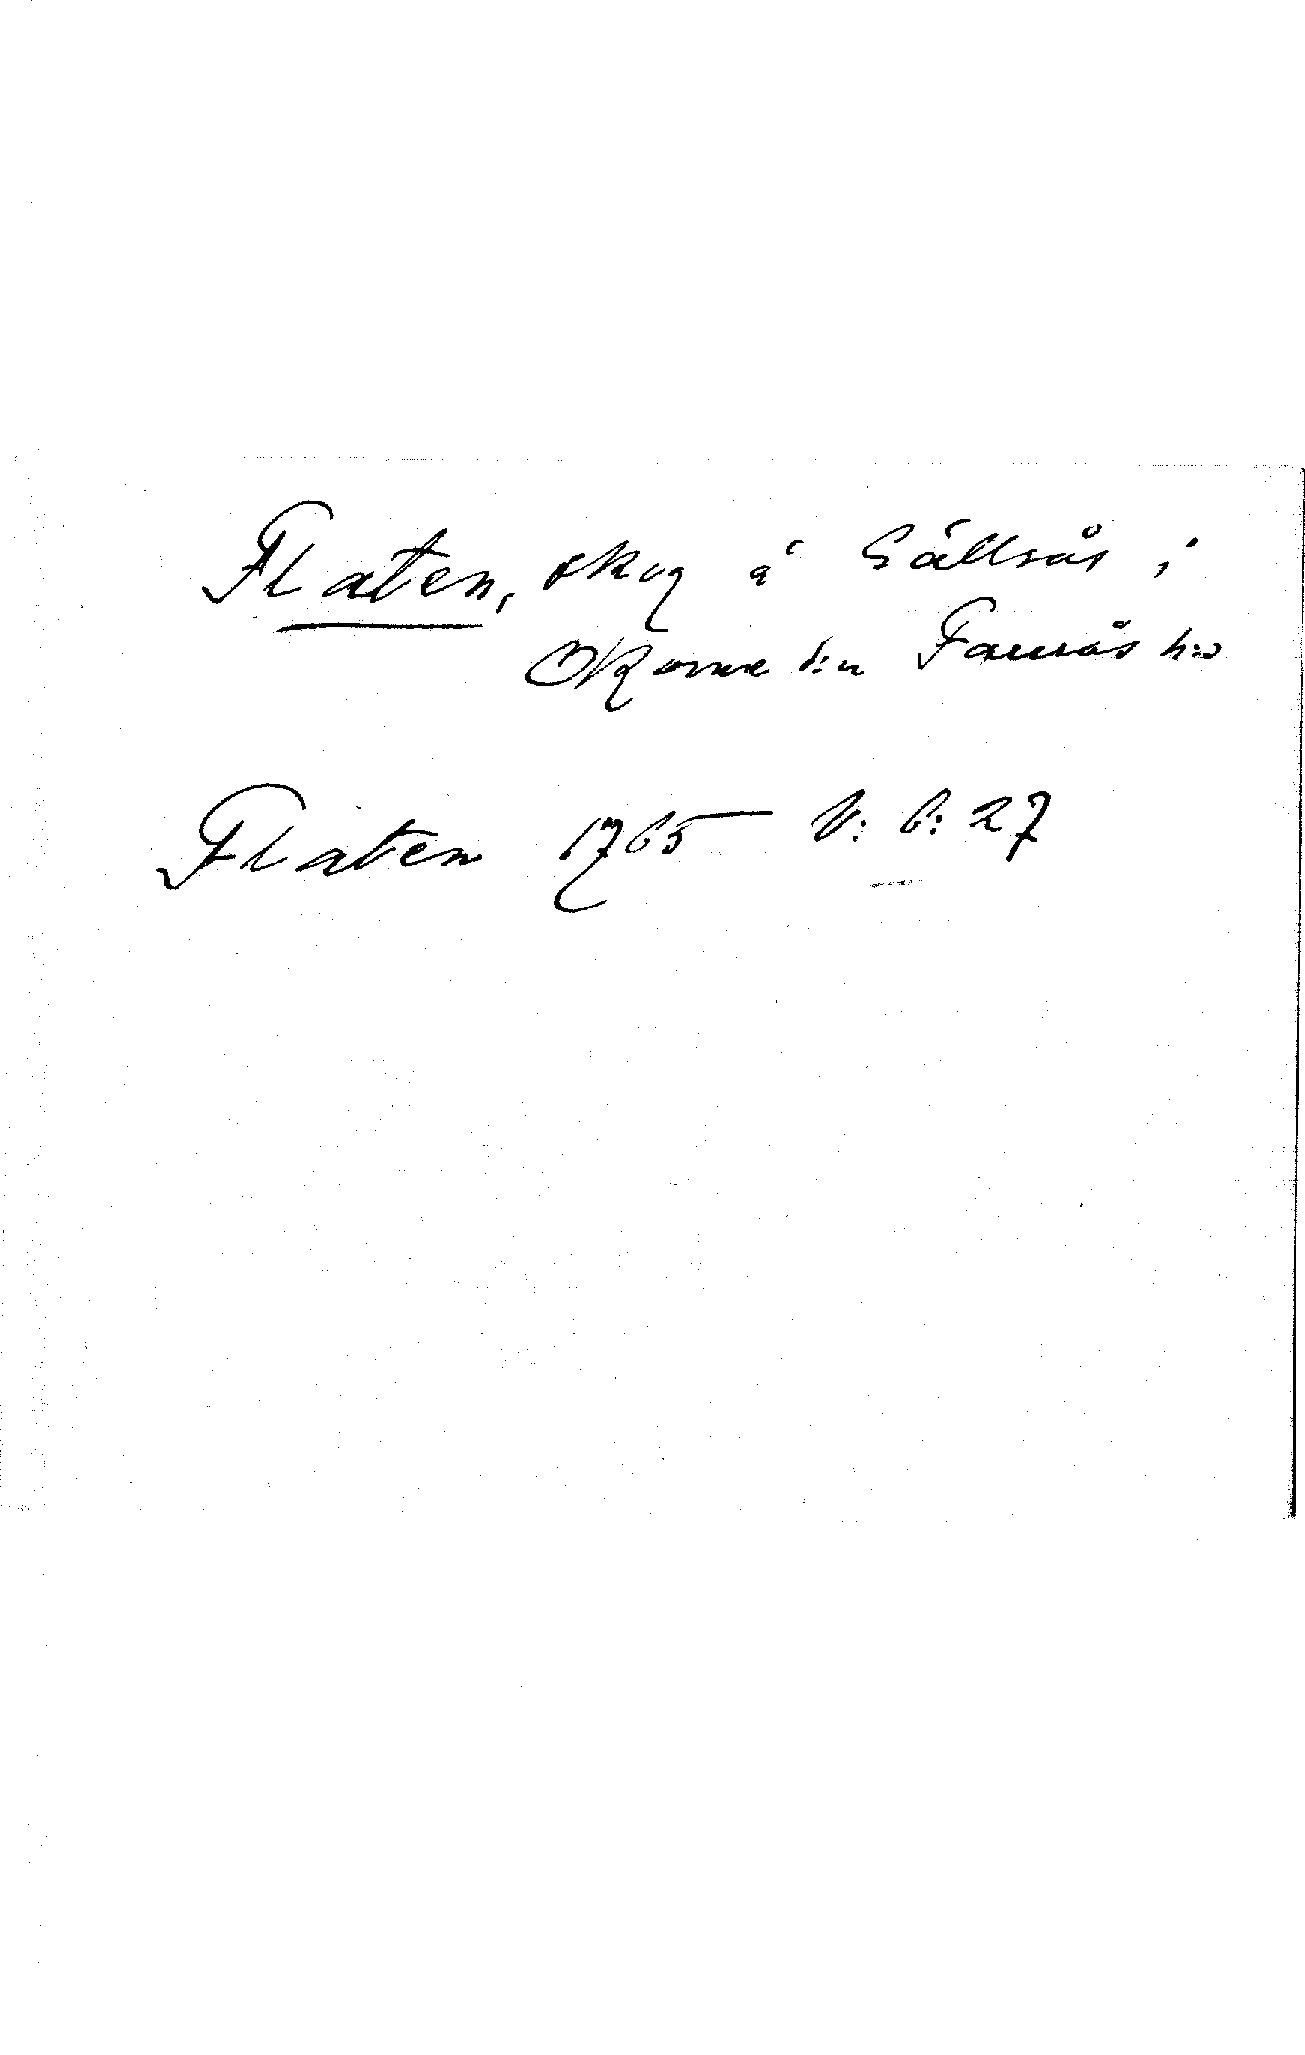 Flaten, skog å Sällsås i
Okome s:n Faurås h:d
Flaten 1765 V: 6: 27